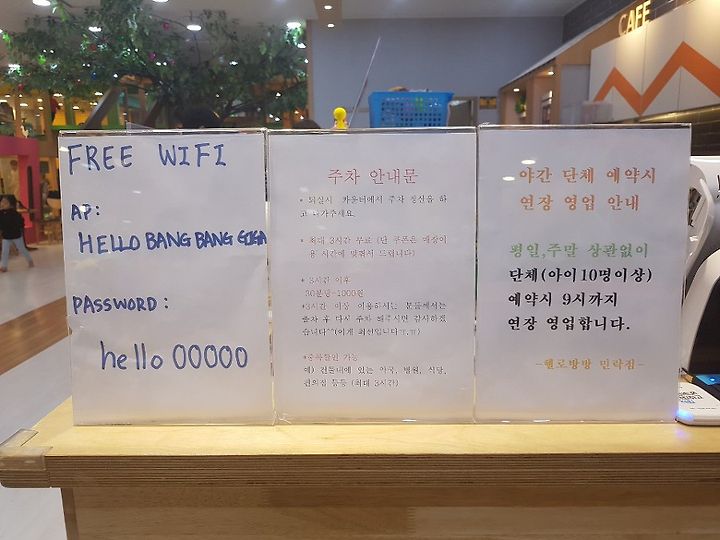 CAFE
FREE WIFI
AP:
HELLO BANG BANG GIGA
PASSWORD:
hello 00000
주차 안내문
* 퇴실시 카운터에서 주차 정산을 하
고 나가주세요.
* 최대 3시간 무료 (단 쿠폰은 매장이
용 시간에 맞춰서 드립니다)
* 3시간 이후
30분당-1000원
*3시간 이상 이용하시는 분들께서는
출차 후 다시 주차 해주시면 감사하겠
습니다^^(이게 최선입니다ㅜ.ㅠ)
*중복할인 가능
예) 건물내에 있는 약국, 병원, 식당,
편의점 등등 (최대 3시간)
야간 단체 예약시
연장 영업 안내
평일,주말 상관없이
단체(아이10명이상)
예약시 9시까지
연장 영업합니다.
-헬로방방 민락점-